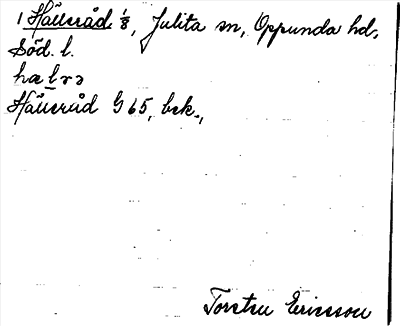 1 Hälleråd 1/8, Julita sn, Oppunda hd,
Söd. l.
Hälleråd G 65, bek.,
Torsten Ericsson